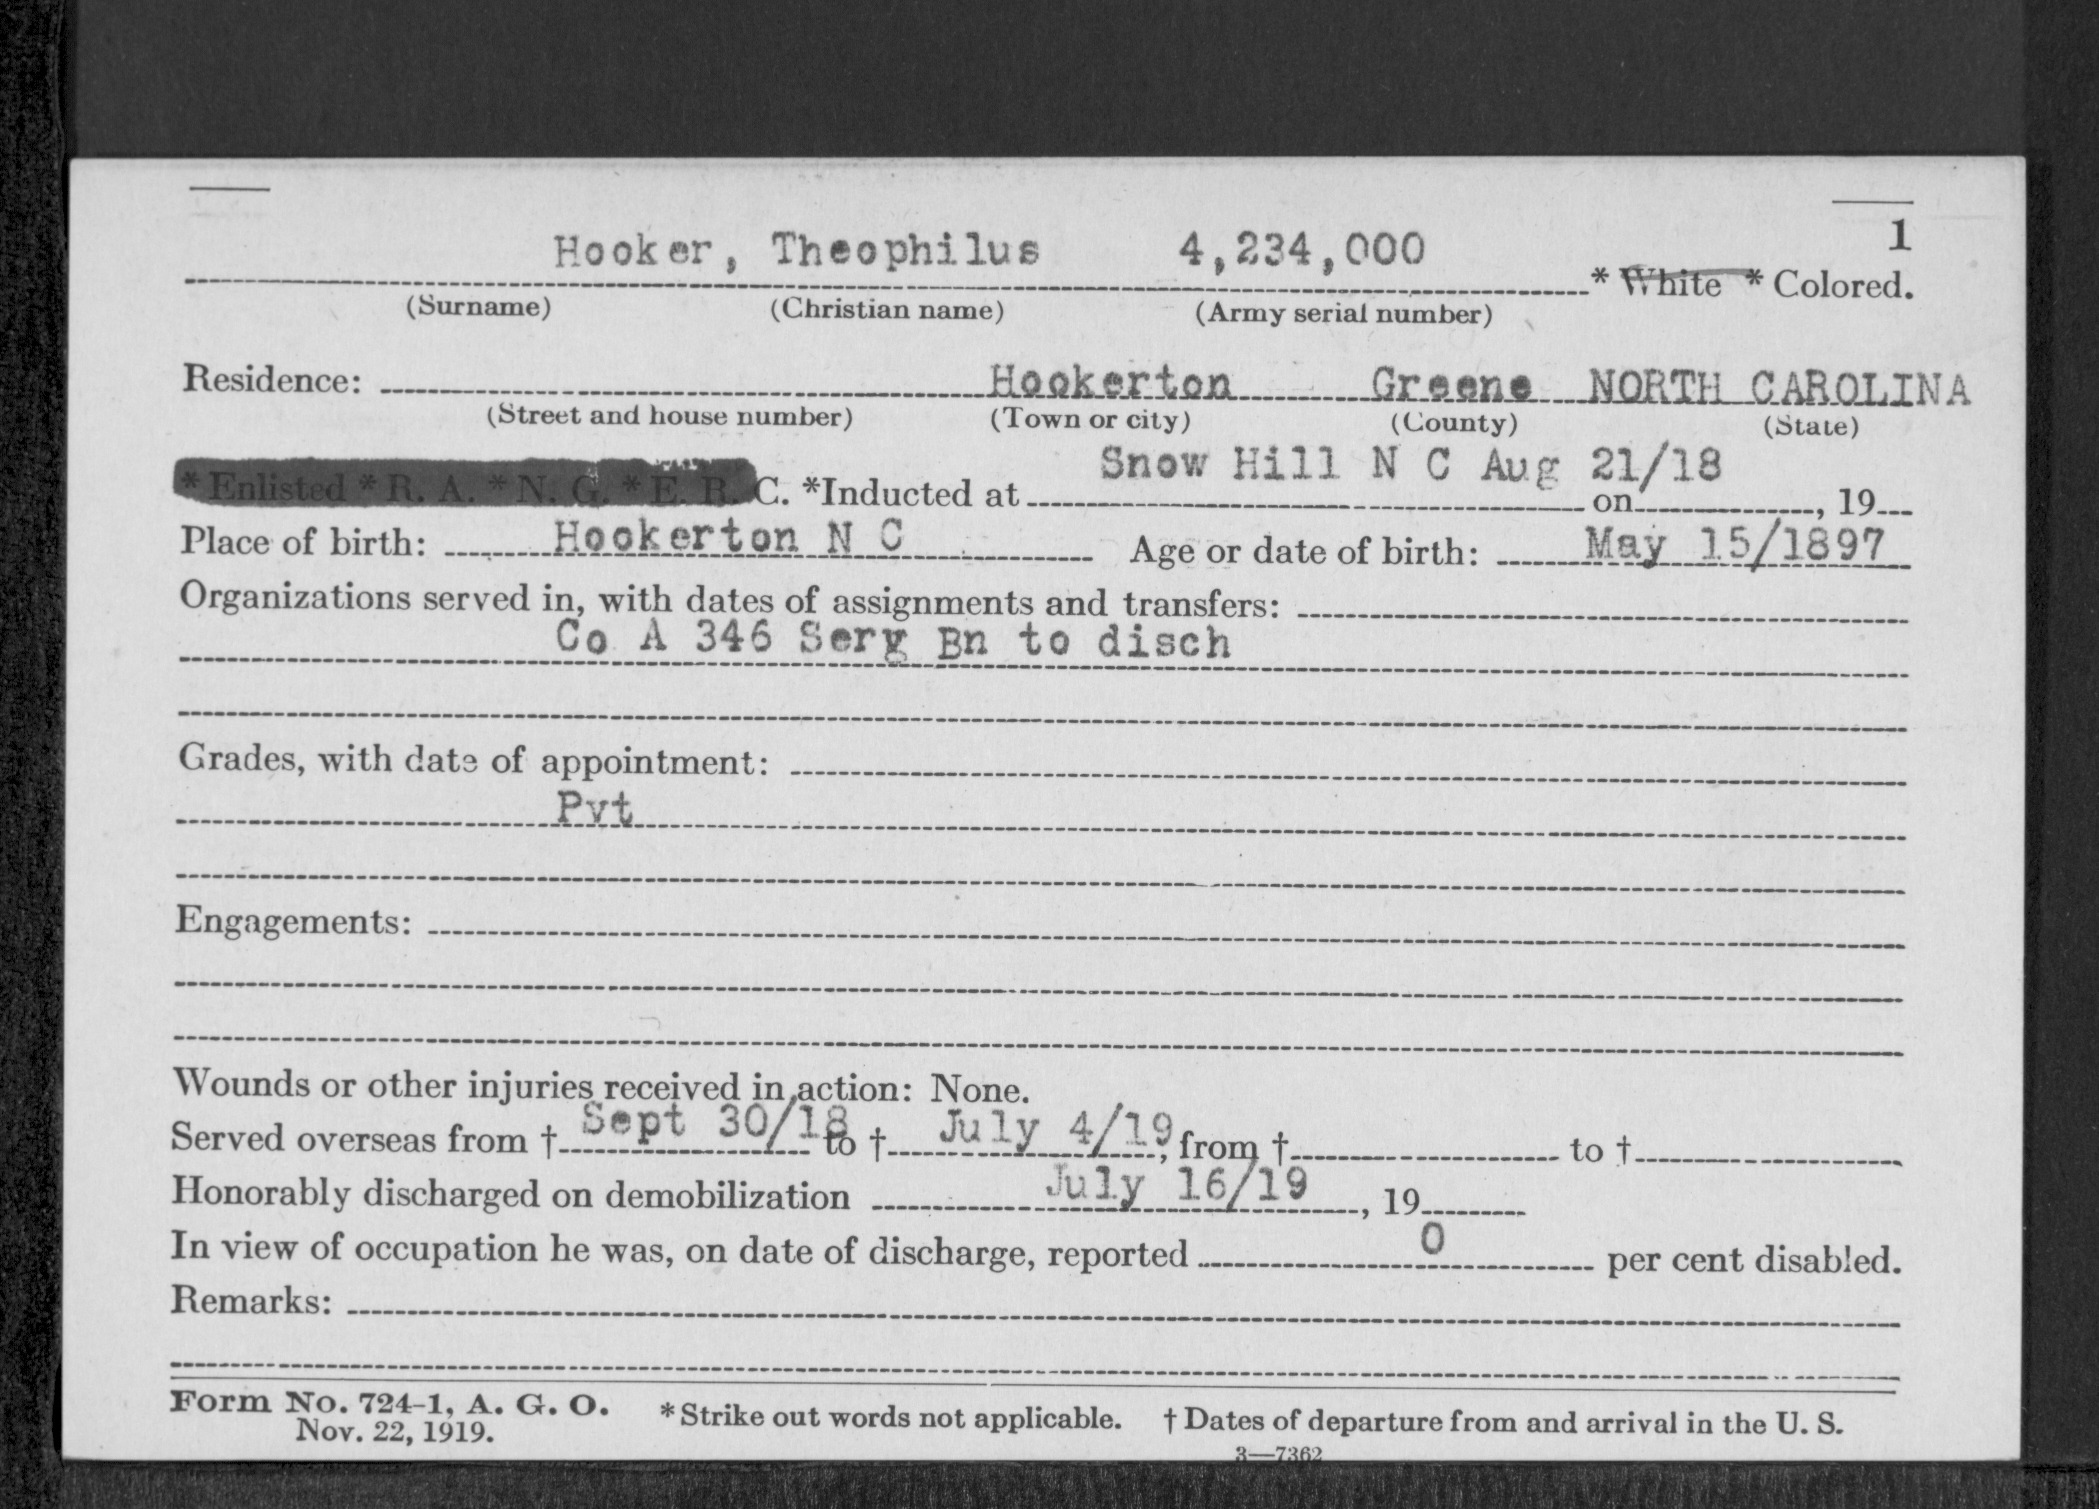 1
Hooker, Theophilus 4,234,000 * White * Colored.
(Surname) (Christian name) (Army serial number)
Residence: Hookerton Greene NORTH CAROLINA
(Street and house number) (Town or city) (County) (State)
Snow Hill N C Aug 21/18
* Enlisted * R. A. * N. G. * E. R. C. *Inducted at on , 19
Place of birth: Hookerton N C Age or date of birth: May 15/1897
Organizations served in, with dates of assignments and transfers:
Co A 346 Serv Bn to disch
Grades, with date of appointment:
Pvt
Engagements:
Wounds or other injuries received in action: None.
Served overseas from † Sept 30/18 to † July 4/19, from † to †
Honorably discharged on demobilization July 16/19, 19
In view of occupation he was, on date of discharge, reported 0 per cent disabled.
Remarks:
Form No. 724-1, A. G. O. * Strike out words not applicable. † Dates of departure from and arrival in the U. S.
Nov. 22, 1919.
3—7362